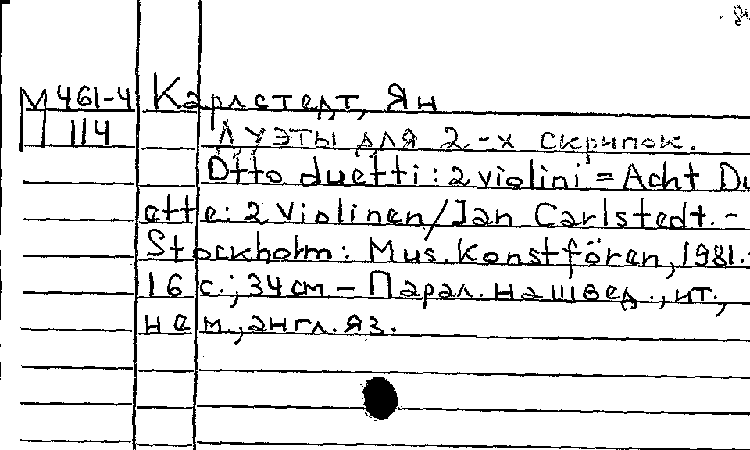 М 461-4 Карлстедт, Ян
П 114 Дуэты для 2-х скрипок.
Otto duetti: 2 violini = Acht Du
ette: 2 Violinen/Jan Carlstedt. -
Stockholm: Mus. Konstfören, 1981.-
16 с.; 34 см - Парал. на швед., ит.,
нем., англ. яз.